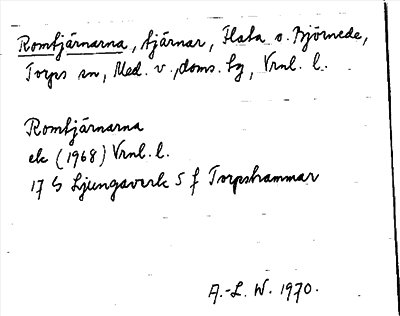 Romtjärnarna, tjärnar, Flata o. Björnede,
Torps sn, Med. v., doms. tg, Vrnl. l.
Romtjärnarna
ek (1968) Vrnl. l.
17 G Ljungaverk S f Torpshammar
A.-L. W. 1970.